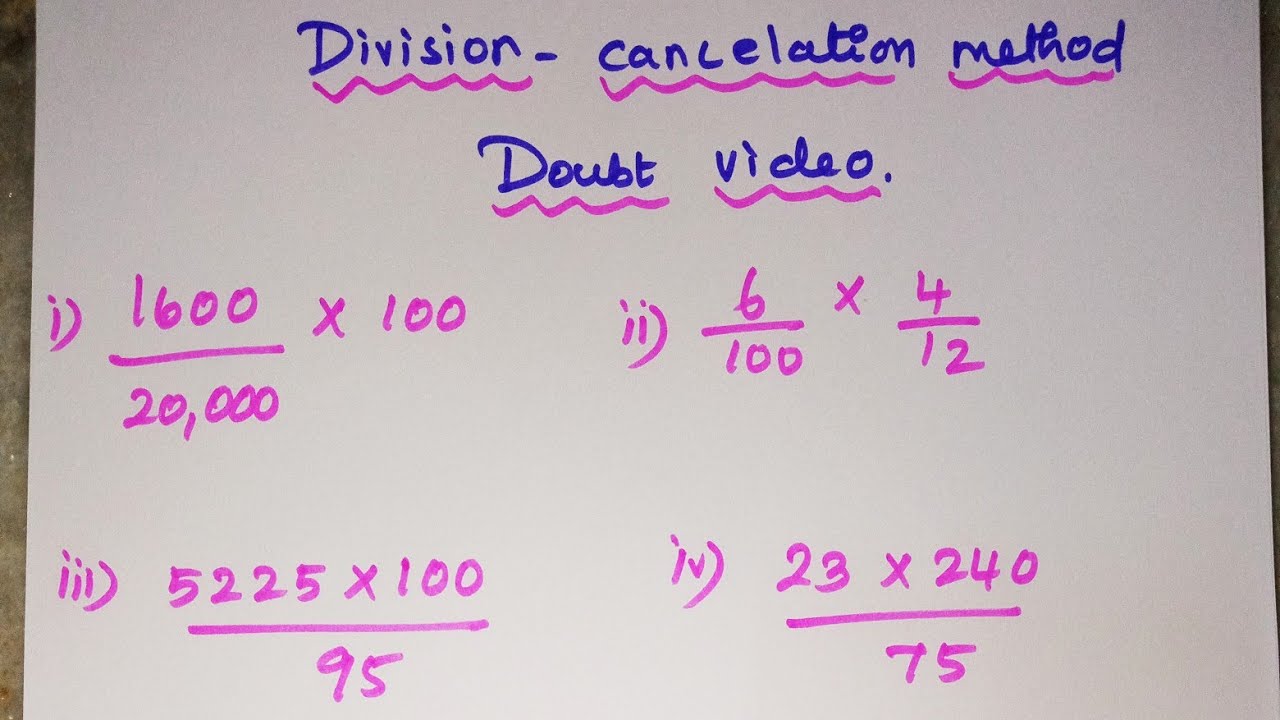 Division - cancelation method
Doubt video.
i) 1600 × 100
20,000
ii) 6 × 4
100 12
iii) 5225 × 100
95
iv) 23 × 240
75